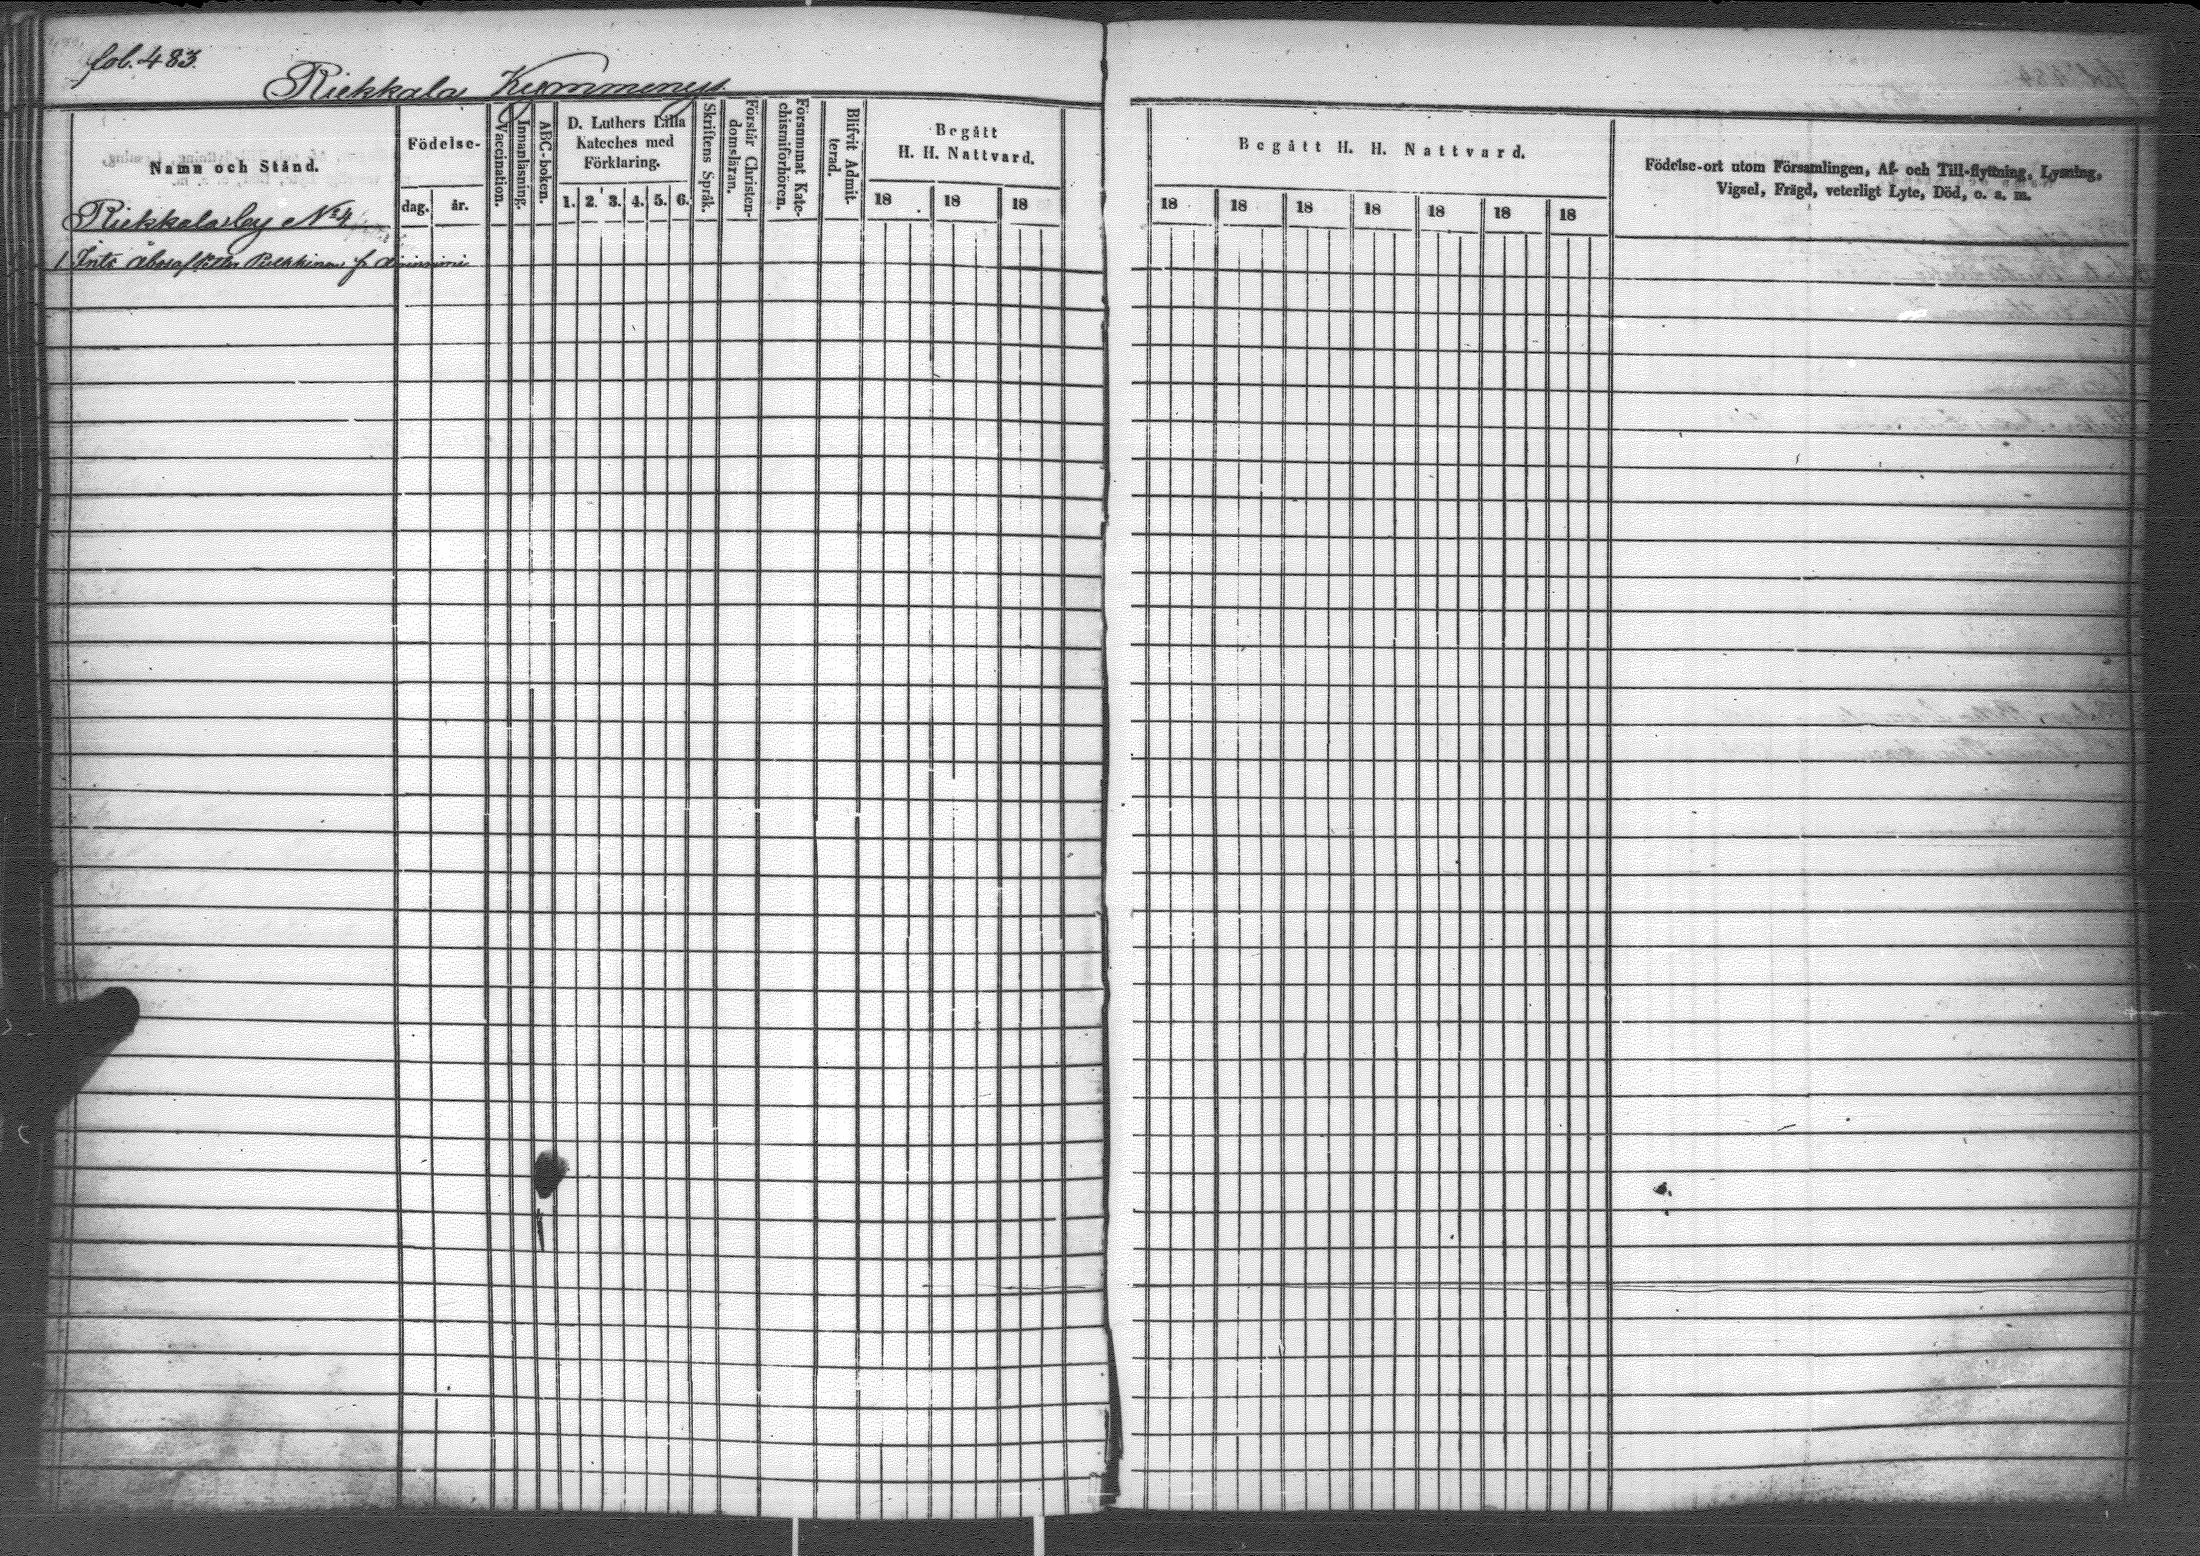 fol. 483
Riekkala Kymmenys.
Namn och Stånd.
Födelse-
dag.
år.
Vaccination.
Innanläsning.
ABC-boken.
D. Luthers Lilla
Kateches med
Förklaring.
1. 2. 3. 4. 5. 6.
Skriftens Språk.
Förstår Christen-
domsläran.
Försummat Kate-
chismiförhören.
Blifvit Admit-
terad.
Begått
H. H. Nattvard.
18 18 18
Begått H. H. Nattvard.
18 18 18 18 18 18 18
Födelse-ort utom Församlingen, Af- och Till-flyttning, Lysning,
Vigsel, Frägd, veterligt Lyte, Död, o. a. m.
Riekkalax by No 4